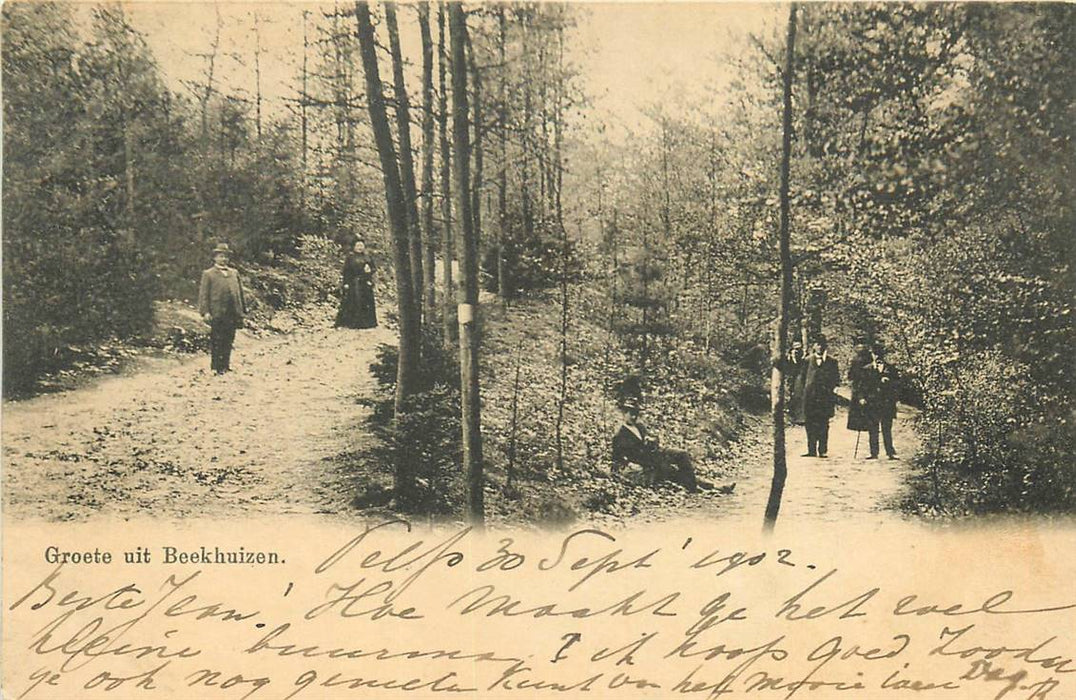 Groete uit Beekhuizen.
Velp 30 Sept' 1902.
Beste Jean! Hoe maakt ge het wel
kleine buurman? ik hoop goed Zoodat
ge ook nog genieten kunt van het mooie